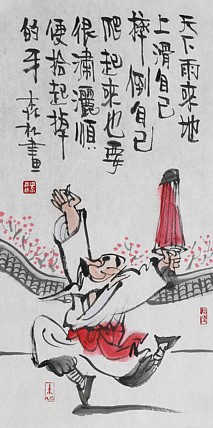 天下雨來地
上滑自己
摔倒自己
爬起來也要
很瀟灑順
便拾起掉
的牙